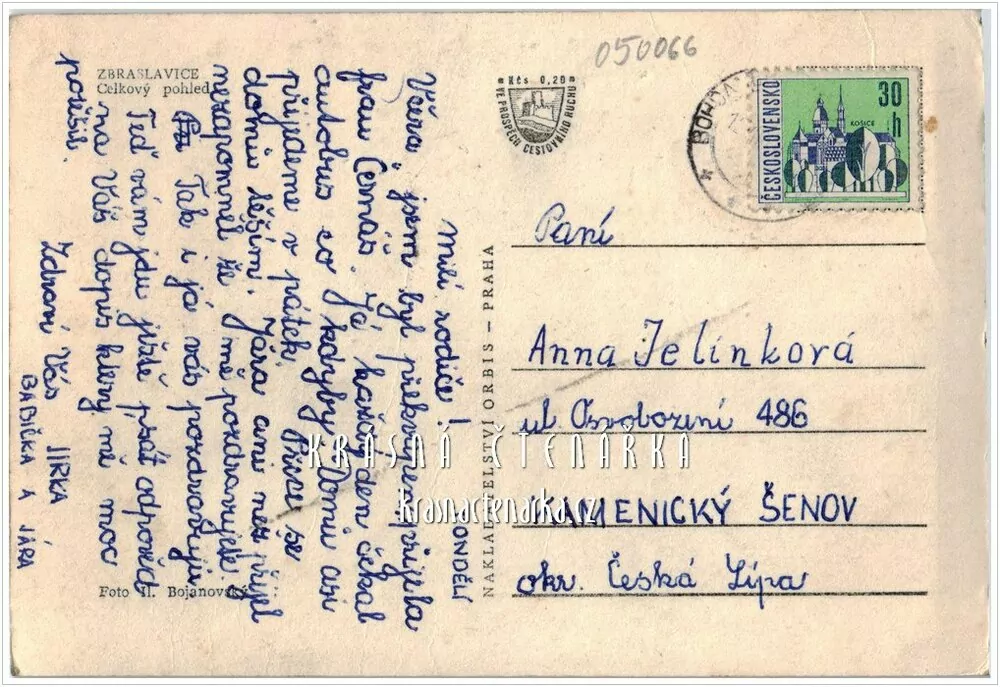 050066
ZBRASLAVICE
Celkový pohled
Kčs 0,20
VE PROSPĚCH CESTOVNÍHO RUCHU
ČESKOSLOVENSKO
30 h
KOŠICE
PONDĚLÍ
Milí rodiče!
Včera jsem byl překvapen přijela
frau Černáš. Já každý den čekal
autobus co kdyby. Domů asi
přijedeme v pátek. Přece se
domů těším. Jára ani
nezapomněl že mě pozdravujete.
Tak i já vás pozdravuji.
Teď vám jdu ještě psát odpověd
na Váš dopis který mě moc
potěšil.
Zdraví Vás JIRKA
BABIČKA A JÁRA
Foto Bojanovský
NAKLADATELSTVÍ ORBIS – PRAHA
Paní
Anna Jelínková
ul. Osvobození 486
KRÁSNÁ ČTENÁŘKA
krasnactenarka.cz
KAMENICKÝ ŠENOV
okr. Česká Lípa